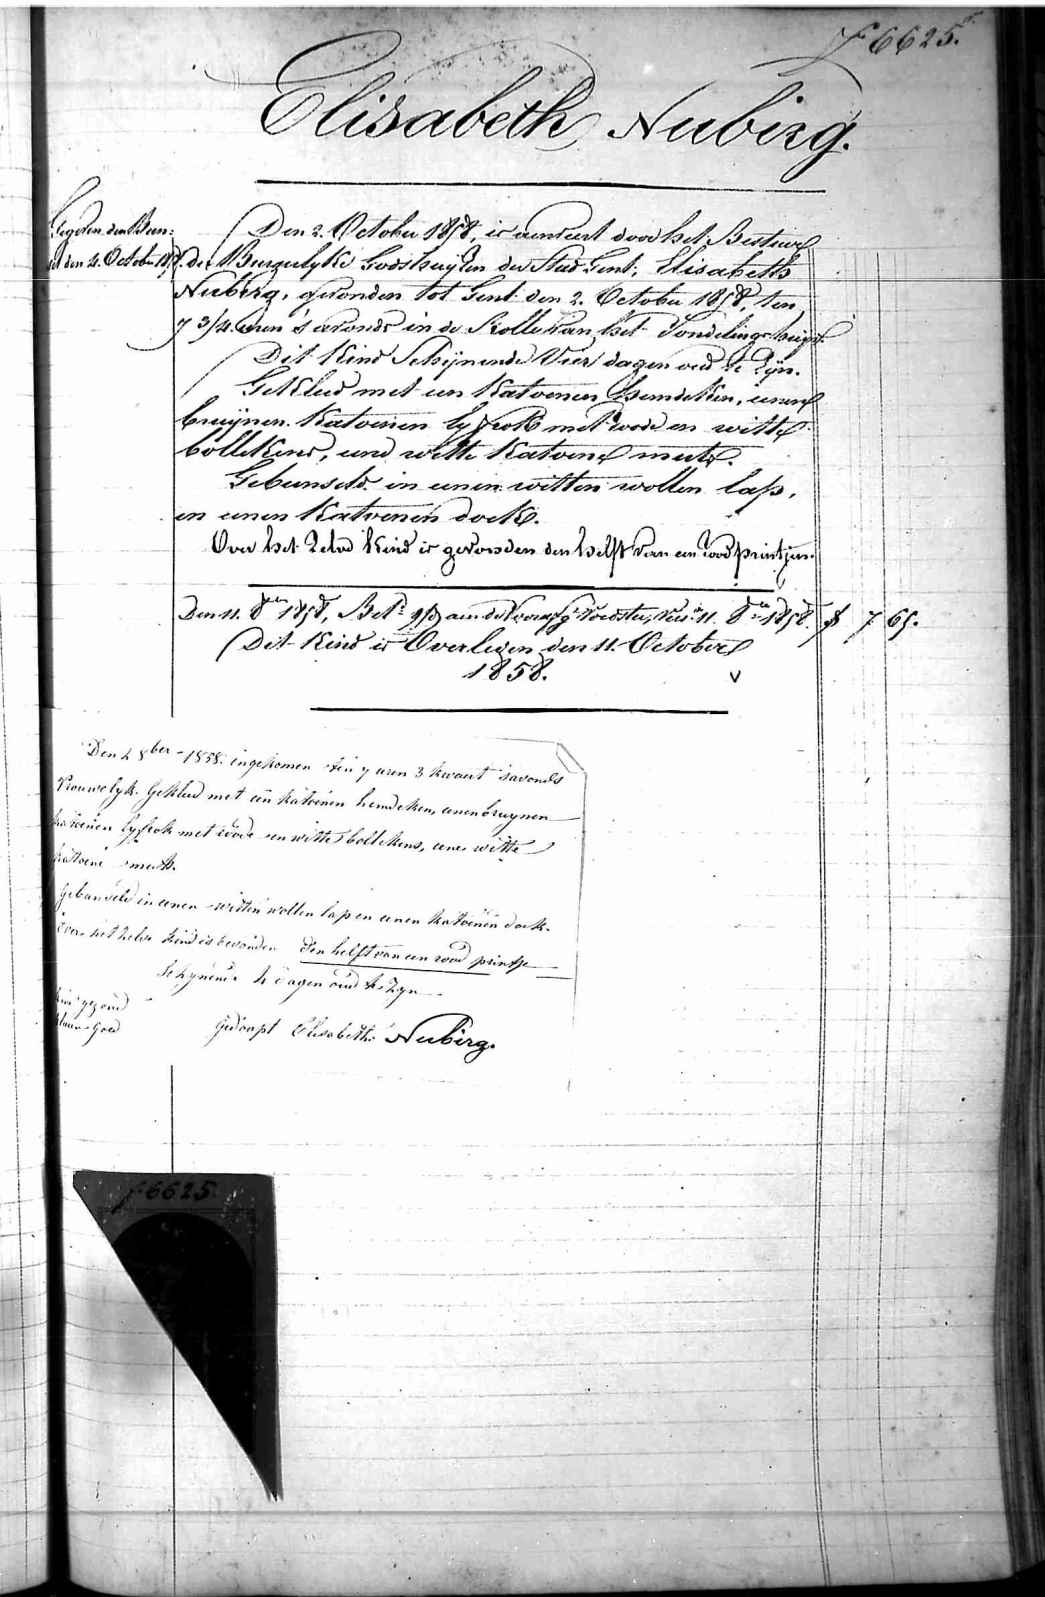 f 6625.
Elisabeth Nubirg.
Gegeven den Buu-
den 4. October 1858.
Den 2. October 1858, is aenveert door het Bestuur
der Burgerlyke Godshuijzen der Stad Gent, Elisabeth
Nubirg, gevonden tot Gent den 2. October 1858, ten
7 3/4 uren 's avonds in de Rolle van het Vondelingshuijs.
Dit Kind Schijnende Vier dagen oud te Zijn.
Gekleed met een Katoenen Hemdeken, eenen
bruijnen Katoenen lyfrok met roode en witte
bollekens, eene witte Katoene muts.
Gebunseld in eenen witten wollen lap,
en eenen Katoenen doek.
Over het Zelve Kind is gevonden den helft van een rood printjen.
Den 11. 8ber 1858, aen de Voedster, 11. 8ber 1858. f 7 65.
Dit Kind is Overleden den 11. October
1858. v
Den 2 8ber 1858. ingekomen ten 7 uren 3 kwaert 's avonds
Vrouwelyk. Gekleed met een katoenen hemdeken, eenen bruynen
katoenen lyfrok met roode en witte bollekens, eene witte
kattoene muts.
Gebunseld in eenen witten wollen lap en eenen katoenen doek.
Over het zelve kind is bevonden den helft van een rood printje
Schynende 4 dagen oud te Zyn
Kind gezond
Goed
Gedoopt Elisabeth Nubirg.
f 6625.